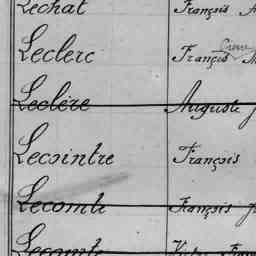 Lechat François
Leclerc François
Leclère Auguste
Lecointre François
Lecomte François
Lecomte Victor